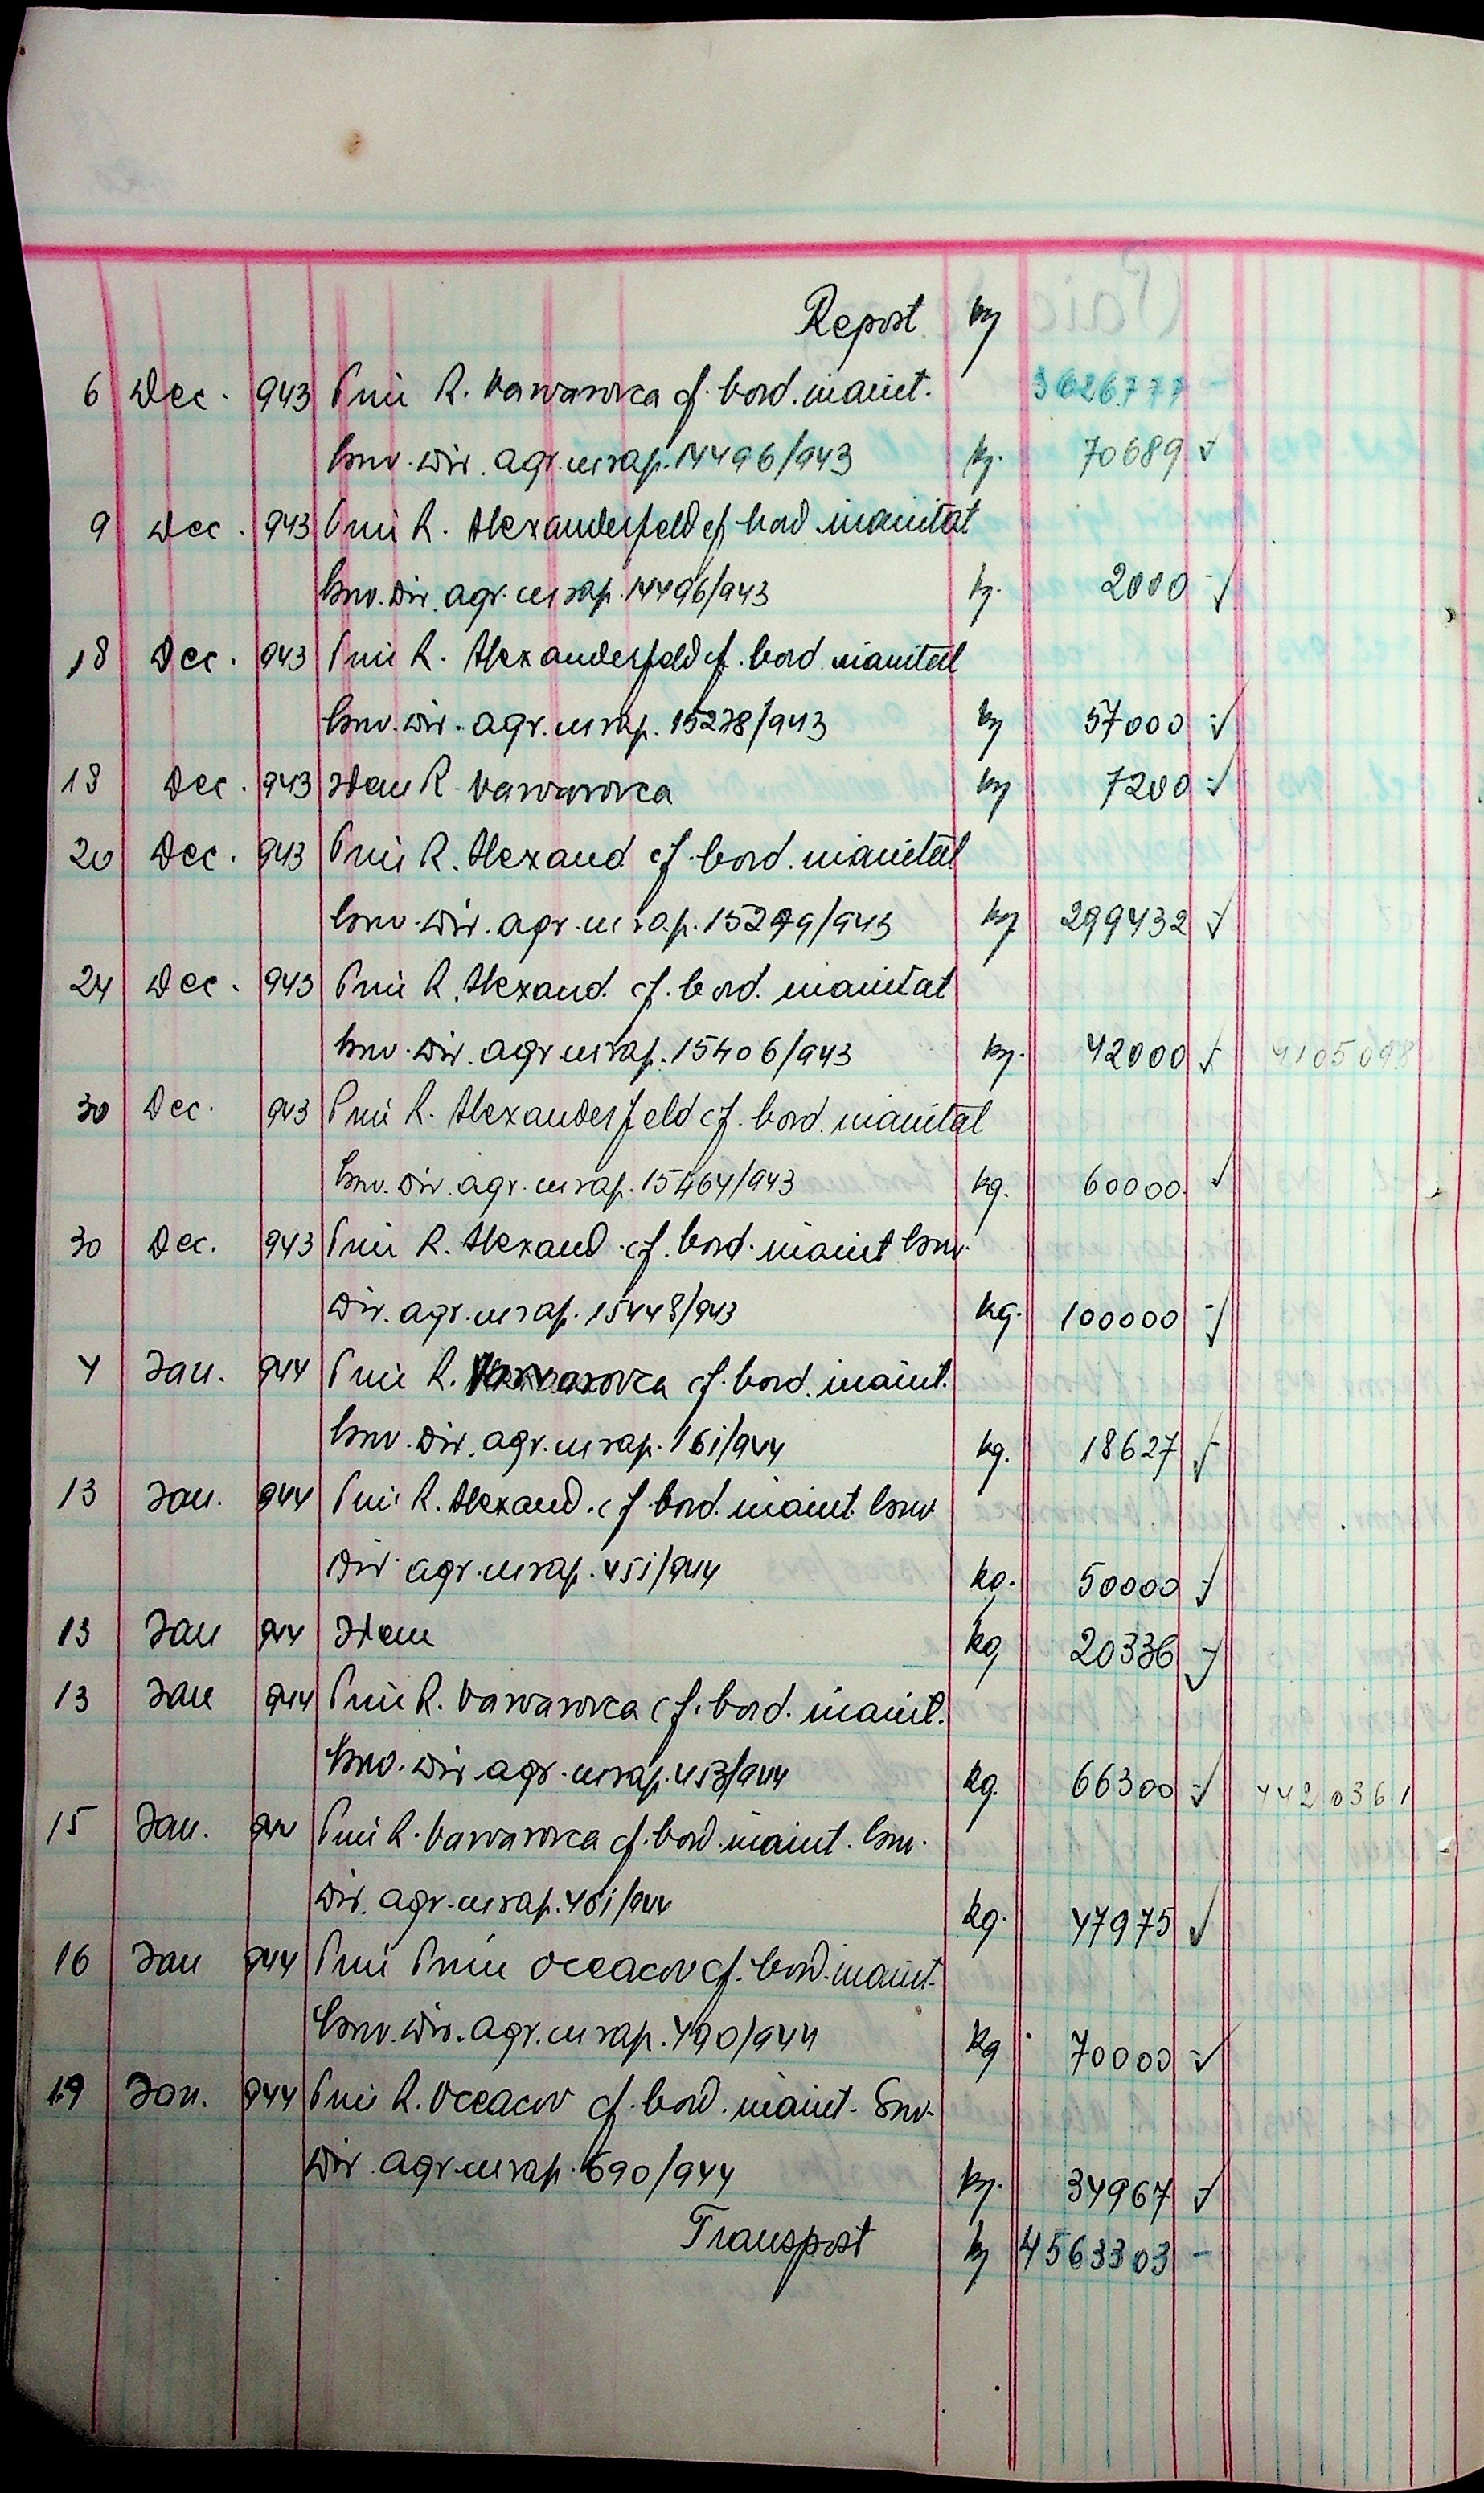 Report kg
6 Dec. 943 Prin R. Varvarovca cf. bord. înaint. 3626777 -
Conv. Dir. agr. cu rap. 14496/943 kg. 70689
9 Dec. 943 Prin R. Alexanderfeld cf bord înaintat
Conv. Dir. agr. cu rap. 14496/943 kg. 2000 -
18 Dec. 943 Prin R. Alexanderfeld cf. bord înaintat
Conv. Dir. agr. cu rap. 15278/943 kg 57000 -
18 Dec. 943 Idem R. Varvarovca kg 7200 -
20 Dec. 943 Prin R. Alexand cf. bord. înaintat
Conv. Dir. agr. cu rap. 15279/943 kg 299432 -
24 Dec. 943 Prin R. Alexand. cf. bord. înaintat
Conv. Dir. agr cu rap. 15406/943 kg. 42000 - 4105098
30 Dec. 943 Prin R. Alexanderfeld cf. bord. înaintat
Conv. Dir. agr. cu rap. 15464/943 kg. 60000
30 Dec. 943 Prin R. Alexand. cf. bord. înaint Conv.
Dir. agr. cu rap. 15448/943 kg. 100000 -
4 Jan. 944 Prin R. Varvarovca cf. bord. înaint.
Conv. Dir. agr. cu rap. 161/944 kg. 18627 -
13 Jan. 944 Prin R. Alexand. cf. bord. înaint. Conv.
Dir agr. cu rap. 451/944 kg. 50000 -
13 Jan 944 Idem kg 20336 -
13 Jan 944 Prin R. Varvarovca cf. bord. înaint.
Conv. Dir. agr. cu rap. 453/944 kg. 66300 - 4420361
15 Jan. 944 Prin R. Varvarovca cf. bord. înaint. Conv.
Dir. agr. cu rap. 461/944 kg. 47975
16 Jan 944 Prin Prin Oceacov cf. bord. înaint.
Conv. Dir. agr. cu rap. 490/944 kg 70000 -
19 Jan. 944 Prin R. Oceacov cf. bord. înaint. Conv.
Dir. agr. cu rap. 690/944 kg. 34967 -
Transport kg 4563303 -